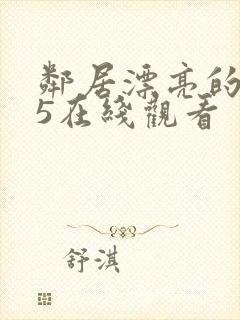 鄰居漂亮的
5在綫觀看
舒淇